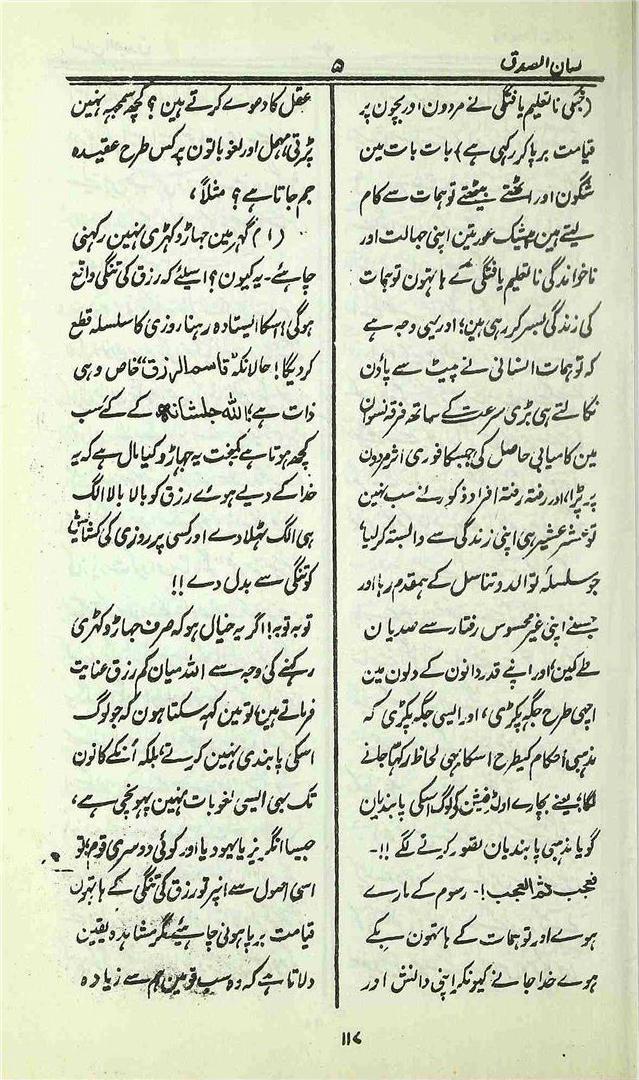 لسان الصدق
۵
(جنکی ناتعلیم یافتگی نے مردون اور بچون پر
قیامت برپا کر رکہی ہے) بات بات مین
شگون اور اٹھتے بیٹھتے توہمات سے کام
لیتے ہین۔ بیشک عورتین اپنی جہالت اور
ناخواندگی ناتعلیم یافتگی کے ہاتہون توہمات
کی زندگی بسر کر رہی ہین؛ اور یہی وجہ ہے
کہ توہمات انسانی نے پیٹ سے پاؤن
نکالتے ہی بڑی سرعت کے ساتھ فرقہ نسوان
مین کامیابی حاصل کی جسکا فوری اثر مردون
پر پڑا، اور رفتہ رفتہ افراد ذکور نے سب نہین
تو عشر عشیر ہی اپنی زندگی سے وابستہ کر لیا،
جو سلسلۂ توالد و تناسل کے ہمقدم رہا اور
جسنے اپنی غیر محسوس رفتار سے صدیان
طے کین؛ اور اپنے قدردانون کے دلون مین
اچہی طرح جگہ پکڑی، اور ایسی جگہ پکڑی کہ
مذہبی احکام کیطرح اسکا بہی لحاظ رکہا جانے
لگا؛ یعنے بچارے اولڈ فیشن کے لوگ اسکی پابندیان
گویا مذہبی پابندیان تصور کرنے لگے !!۔
فعجب ثم العجب!۔ رسوم کے مارے
ہوے اور توہمات کے ہاتہون بکے
ہوے خدا جانے کیونکر اپنی دانش اور
عقل کا دعوے کرتے ہین؟ کچھ سمجہہ نہین
پڑتی، مہمل اور لغو باتون پر کس طرح عقیدہ
جم جاتا ہے؟ مثلاً،
(۱) گہر مین جہاڑو کہڑی نہین رکہنی
چاہئے۔ یہ کیون؟ اسلئے کہ رزق کی تنگی واقع
ہوگی! اسکا ایستادہ رہنا روزی کا سلسلہ قطع
کر دیگا! حالانکہ "قاسم الرزق" خاص وہی
ذات ہے؛ اللہ جلشانہ کے کئے سب
کچھ ہوتا ہے کمبخت یہ جہاڑو کیا مال ہے کہ یہ
خدا کے دیے ہوے رزق کو بالا بالا الگ
ہی الگ ٹہلا دے اور کسی پر روزی کی کشایش
کو تنگی سے بدل دے !!
توبہ توبہ! اگر یہ خیال ہو کہ صرف جہاڑو کہڑی
رکہنے کی وجہ سے اللہ میان کم رزق عنایت
فرماتے ہین، تو مین کہہ سکتا ہون کہ جو لوگ
اسکی پابندی نہین کرتے، بلکہ اُنکے کانون
تک بہی ایسی لغویات نہین پہونچی ہے،
جیسا انگریز یا یہود یا اور کوئی دوسری قوم؛ تو
اسی اصول سے انپر تو رزق کی تنگی کے ہاتہون
قیامت برپا ہونی چاہئیے مگر مشاہدہ یقین
دلاتا ہے کہ وہ سب قومین ہم سے زیادہ
۱۱۷